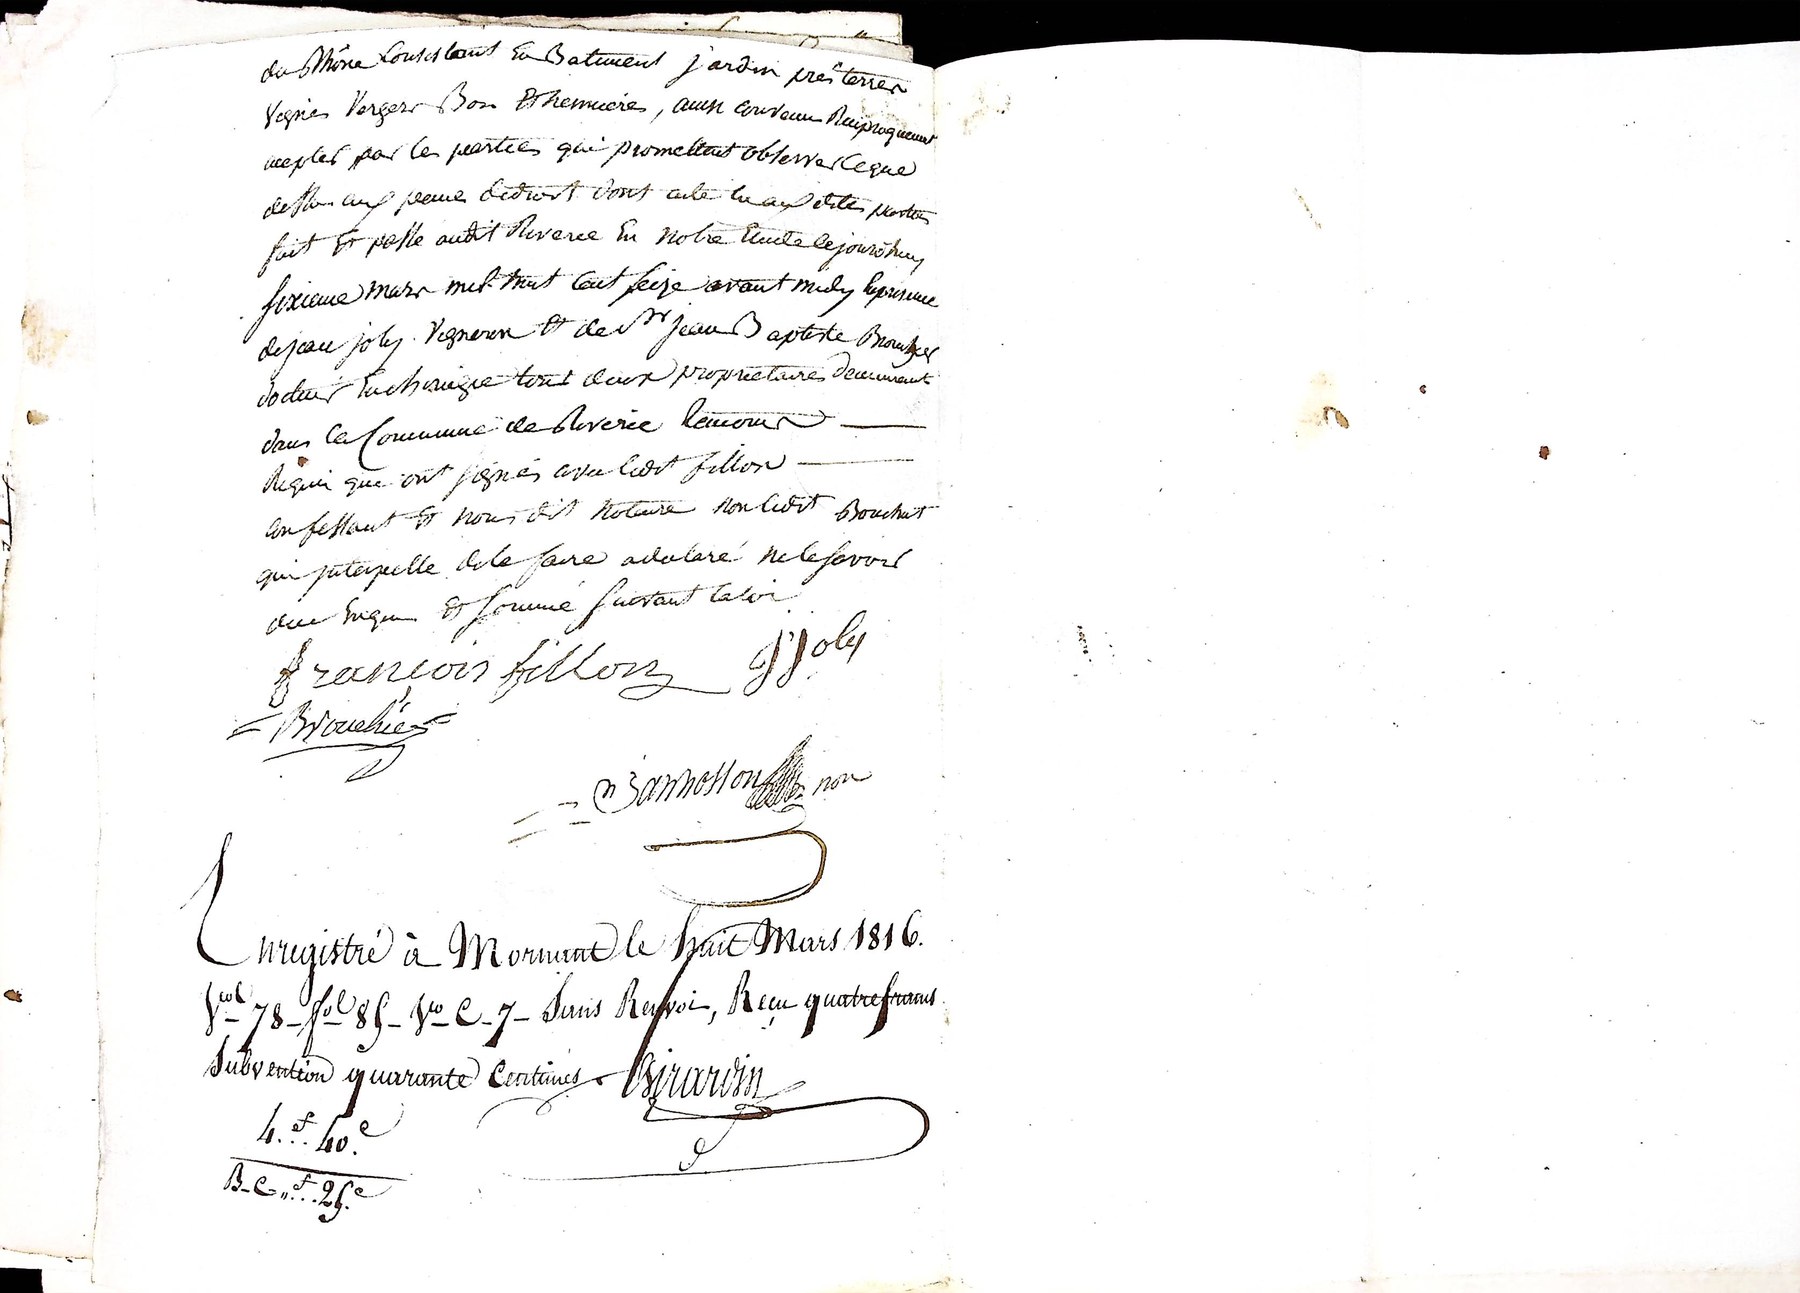 du Rhône Consistant En Batiment jardin prés terres
Vignes Vergers Bois Et hermieres, ainsi convenu Reciproquement
accepter par les parties qui promettent observer ceque
dessus aux peines dedroit dont acte lu aux dites parties
fait Et passé audit Riverie En notre Etude cejourdhuy
sixieme mars mil huit Cent seize avant midy En presence
dejean joly Vigneron Et de Sr jean Baptiste Brouchier
docteur En chirurgie tous deux proprietaires demeurant
dans la Commune de Riverie temoins
Requis qui ont signés avec ledit fillon
confessant Et nous dit notaire non ledit Bouchut
qui interpellé dele faire adeclaré nelesavoir
due Enquis Et sommé suivant laloi
françois fillon JJoly
Brouchier
Bannosson nore
Enregistré à Mornant le huit Mars 1816.
Vol 78 - fol 85 - Vo C - 7 - Sans Renvoi, Reçu quatre francs
Subvention quarante Centimes. Girardin
4.f 40.c
B-C-,,.f.. 25.c